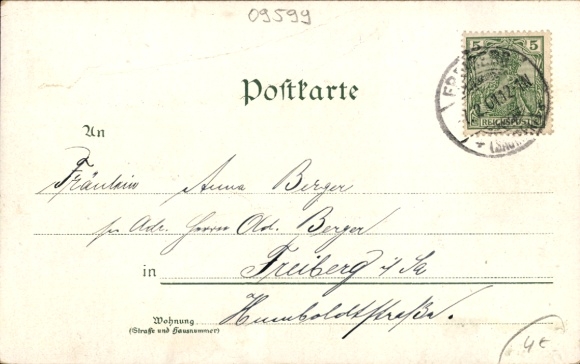 09599
5 5
REICHSPOST
FREIBERG
Postkarte
An
Fräulein Anna Berger
pr Adr. Herrn Ad. Berger
in Freiberg i/Sa
Wohnung Humboldtstraße.
(Straße und Hausnummer)
4€